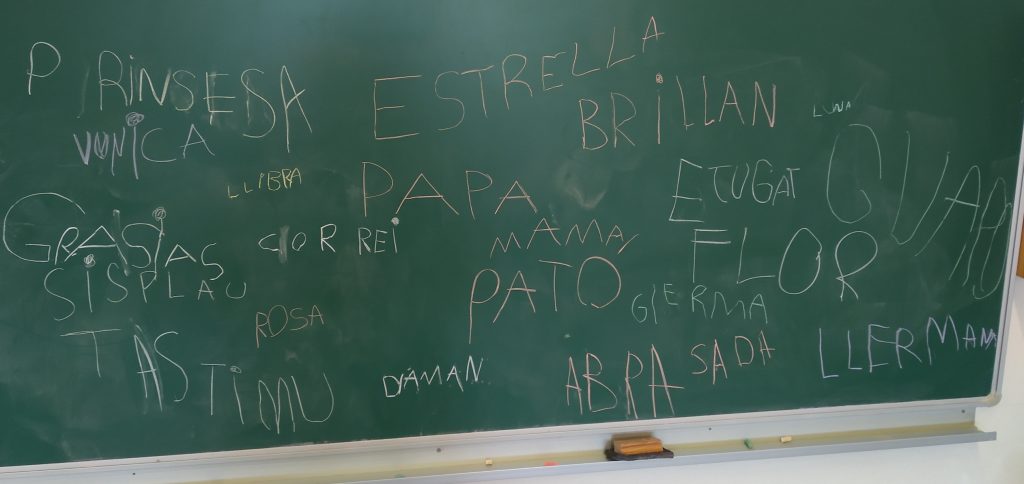 PRINSESA
ESTRELLA
BRILLAN
LUNA
VUNICA
LLIBRA
PAPA
ETUGAT
GUAPO
GRASIAS
CORREI
MAMA
FLOR
SISPLAU
PATO
GIERMA
ROSA
TASTIMU
DAMAN
ABRASADA
LLERMANA